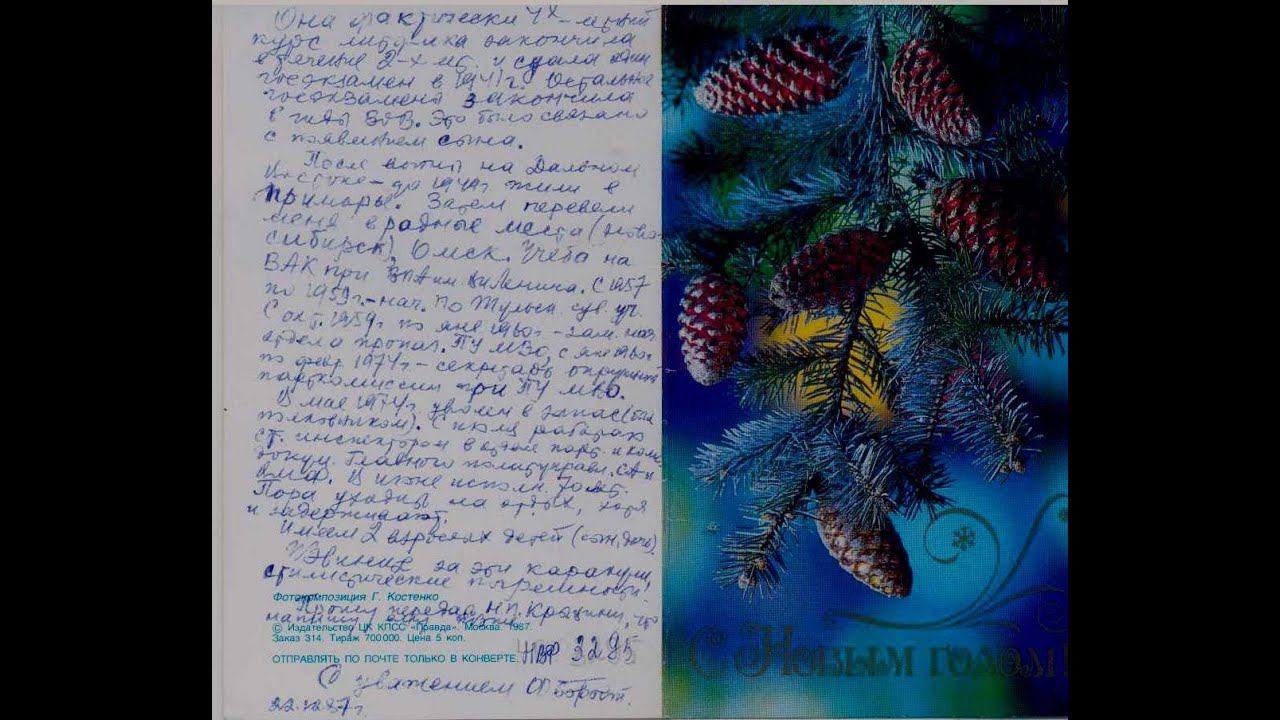 Она фактически 4х-летний
курс пед-ика закончила
в течение 2-х лет. и сдала один
госэкзамен в 1941г. Остальные
госэкзамены закончила
в годы ВОВ. Это было связано
с появлением сына.
После войны на Дальнем
Востоке - до 1949г. жили в
Приморье. Затем перевели
меня в родные места (Ново-
сибирск), Омск. Учеба на
ВАК при ВПА им. В.И. Ленина. С 1957
по 1959г. - нач. ПО Тульск. сув. уч.
С окт. 1959г. по янв 1960г. - зам. нач.
отдела пропаг. ПУ МВО, с
по февр. 1974г. - секретарь окружной
парткомиссии при ПУ МВО.
В мае 1974г. уволен в запас
полковником). С июля работаю
ст. инспектором в отделе парт. и комс.
докум. Главного политуправл. СА и
ВМФ. В июне исполн. 70 лет.
Пора уходить на отдых, хотя
и задерживают.
Имеем 2 взрослых детей (сын, дочь).
Извините за эти каракули,
стилистические погрешности.
Фотокомпозиция Г. Костенко
Прошу передать Н.П. что
напишу ему позже.
© Издательство ЦК КПСС «Правда». Москва. 1987.
Заказ 314. Тираж 700000. Цена 5 коп.
ОТПРАВЛЯТЬ ПО ПОЧТЕ ТОЛЬКО В КОНВЕРТЕ. 3295
С уважением
22.12.87г.
С Новым годом!